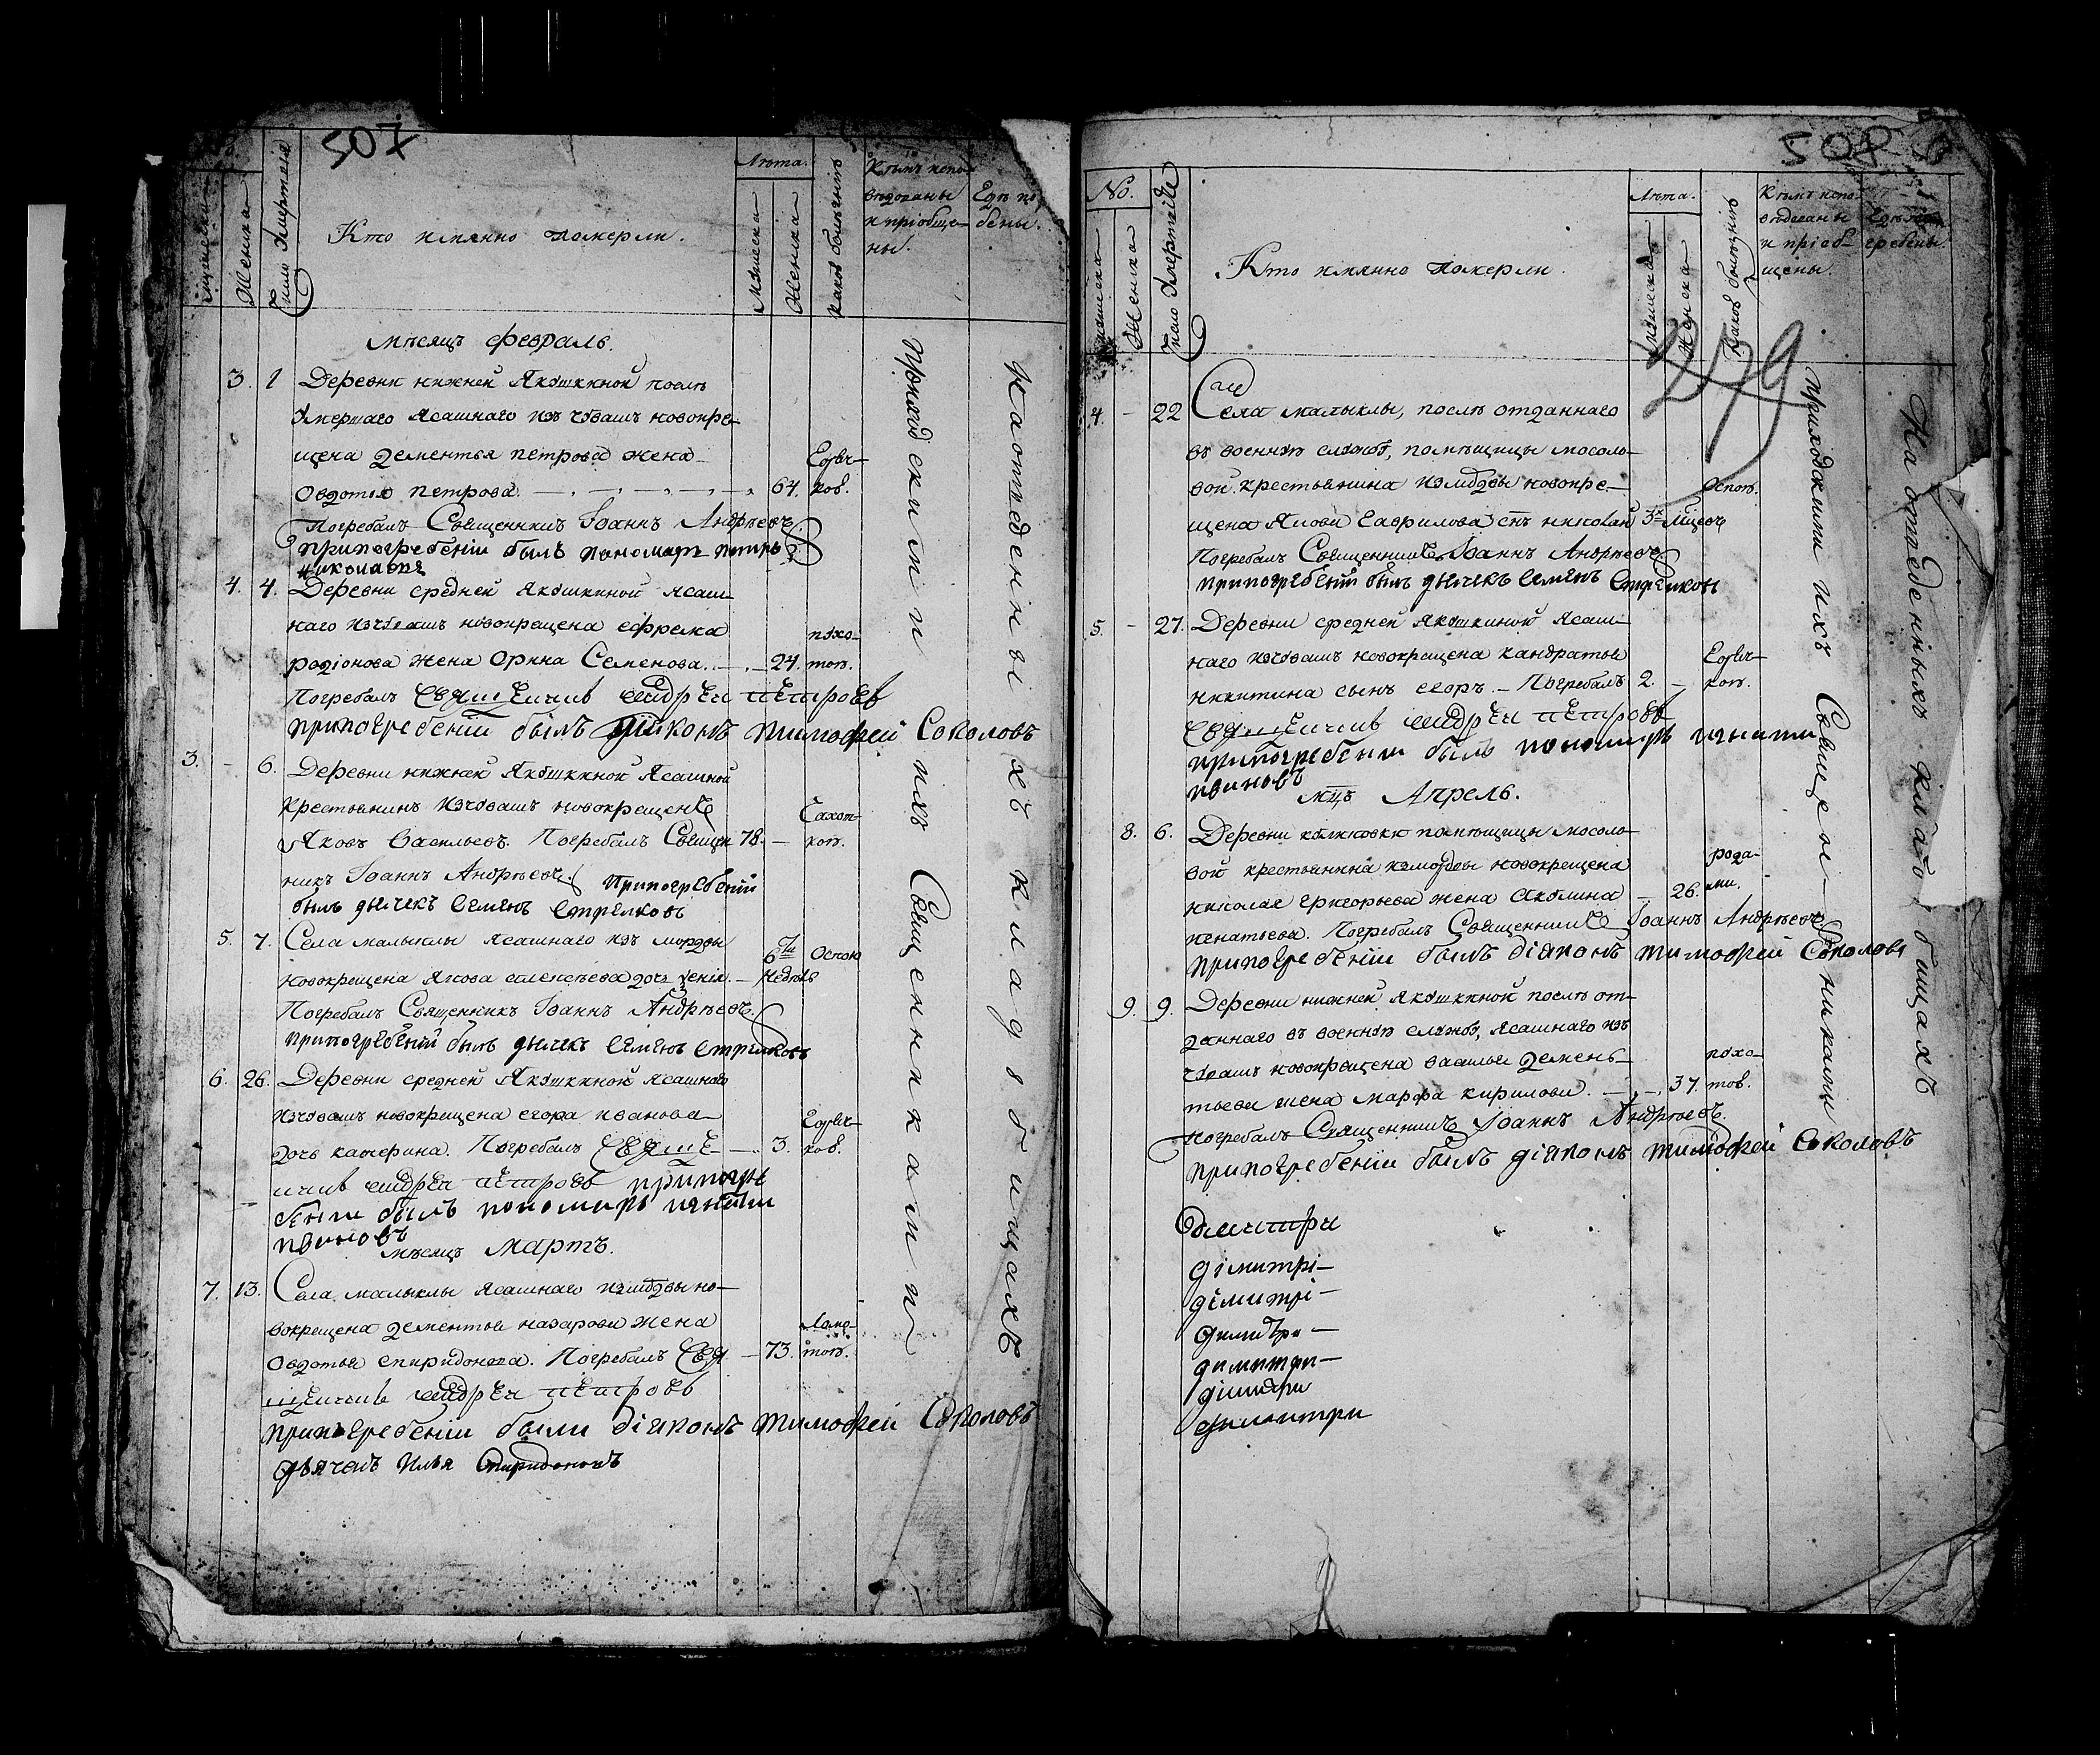 507
Женска
Число Умертвія
Кто имянно померли.
Лѣта.
Мужеска
Женска
какою болѣзнию
Кѣмъ испо-
вѣдованы
и пріобще-
ны.
Гдѣ по
бены.
Мѣсяцъ Февраль.
3. 1 Деревни нижней Якушкиной послѣ
умершаго Ясашнаго изъ чувашъ новокре-
щена Дементья петрова жена
Овдотья петрова. 64. Горяч-
кою.
Погребалъ Священникъ Іоаннъ Андрѣевъ
припогребеніи былъ пономарь петръ
николаевъ
4. 4. Деревни средней Якушкиной ясаш-
наго изчувашъ новокрещена ефрема
родіонова жена Орина Семенова. 24. похо-
тою.
Погребалъ Священникъ андрей петровъ
припогребеніи былъ діяконъ тимофей Соколовъ
3. - 6. Деревни нижней Якушкиной Ясашной
крестьянинъ изчувашъ новокрещенъ
Яковъ Васильевъ. Погребалъ Священ 78. -
никъ Іоаннъ Андрѣевъ. Припогребеніи
былъ дьячекъ Семенъ Стрелковъ
5. 7. Села малыклы ясашнаго изъ мордвы
новокрещена Якова алексѣева дочь 6ти Оспою
недѣль
Погребалъ Священникъ Іоаннъ Андрѣевъ.
припогребеніи былъ дьячекъ Семенъ Стрелковъ
6. 26. Деревни средней Якушкиной ясашнаго
изчувашъ новокрещена егора иванова
дочь катерина. Погребалъ Свяще- 3. Горяч-
кою.
нникъ андрей петровъ припогре
бении былъ пономарь игнатий
ивановъ
Мѣсяцъ Мартъ.
7. 13. Села малыклы ясашнаго измордвы но-
вокрещена дементья назарова жена
Овдотья спиридонова. Погребалъ Свя 73. Ламо-
тою.
щенникъ андрей петровъ
припогребеніи были діяконъ тимофей Соколовъ
дьячекъ Илья Спиридоновъ
Приходскими ихъ Священниками
На отведенныхъ кладбищахъ
508
No.
Мужеска
Женска
Число Умертвія
Кто имянно померли.
Лѣта.
Мужеска
Женска
Какою болѣзнию
Кѣмъ испо-
вѣдованы
и пріоб-
щены.
Гдѣ по-
гребены.
279
4. - 22 Села малыклы, послѣ отданнаго
въ военную службу, помѣщицы мосоло-
вой крестьянина измордвы новокре-
щена Якова Гаврилова сынъ николай 3х мцовъ
Оспою.
Погребалъ Священникъ Іоаннъ Андрѣевъ
припогребеніи былъ дьячекъ Семенъ Стрелковъ
5. - 27. Деревни средней Якушкиной Ясаш-
наго изчувашъ новокрещена кандратья
никитина сынъ егоръ. - Погребалъ 2. - Горяч-
кою.
Священникъ андрей петровъ
припогребении былъ пономарь игнатий
ивановъ
Мцъ Апрель.
8. 6. Деревни помѣщицы мосоло-
вой крестьянина измордвы новокрещена
николая григорьева жена Акулина - 26. рода-
ми.
игнатьева. Погребалъ Священникъ Іоаннъ Андрѣевъ
припогребеніи былъ діяконъ тимофей Соколовъ
9. 9. Деревни нижней Якушкиной послѣ от-
даннаго въ военную службу, ясашнаго изъ
чувашъ новокрещена василья демень-
тьева жена марфа кирилова. 37. похо-
тою.
Погребалъ Священникъ Іоаннъ Андрѣевъ.
припогребеніи былъ діяконъ тимофей Соколовъ
Димитри
дімитрі-
дімитрі-
димитри-
димитри-
дімитри
димитри
Приходскими ихъ Священниками
На отведенныхъ кладбищахъ